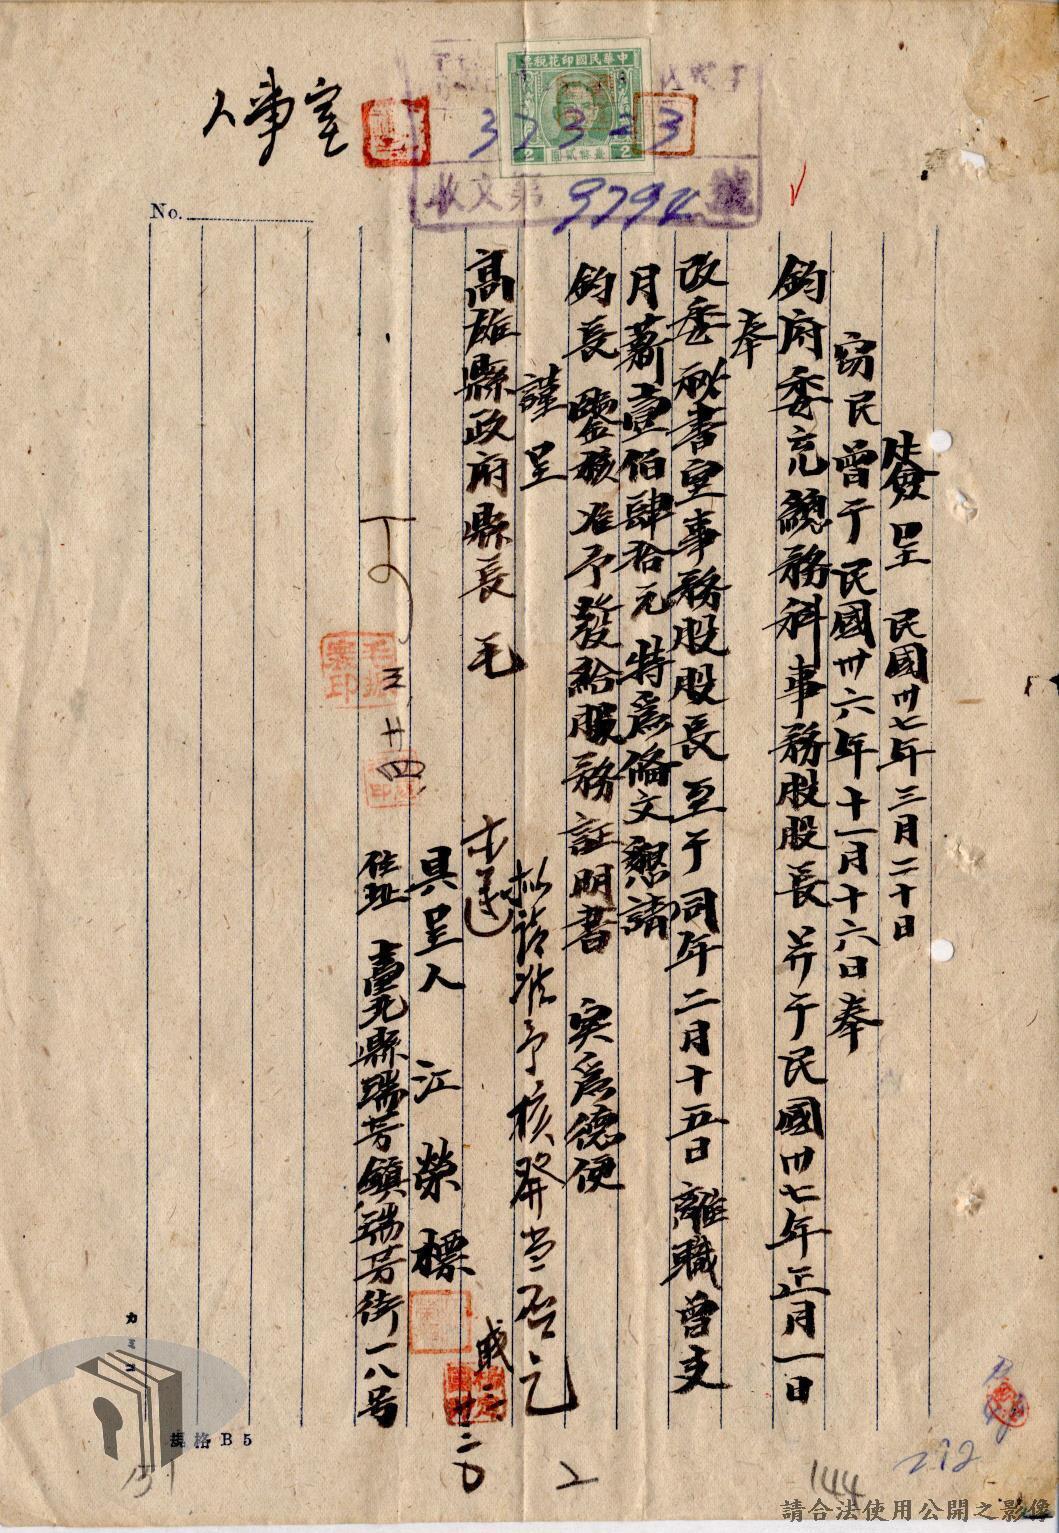 簽呈 民國卅七年三月二十日
窃民曾于民國卅六年十一月十六日奉
鈞府委充總務科事務股股長并于民國卅七年正月一日
奉
改委秘書室事務股股長至于同年二月十五日離職曾支
月薪壹佰肆拾元特爲偹文懇請
鈞長鑒核准予發給服務証明書 实爲德便
謹呈
拟請准予核發当否乞
示遵
高雄縣政府縣長 毛
具呈人 江榮標
住址 臺北縣瑞芳鎮瑞芳街一八号
可
三 廿四
毛振寰印
人事室
中華民國印花稅票
2
2
37 3 23
收文第 9794 號
No.
規格B5
144
272
151
2
請合法使用公開之影像